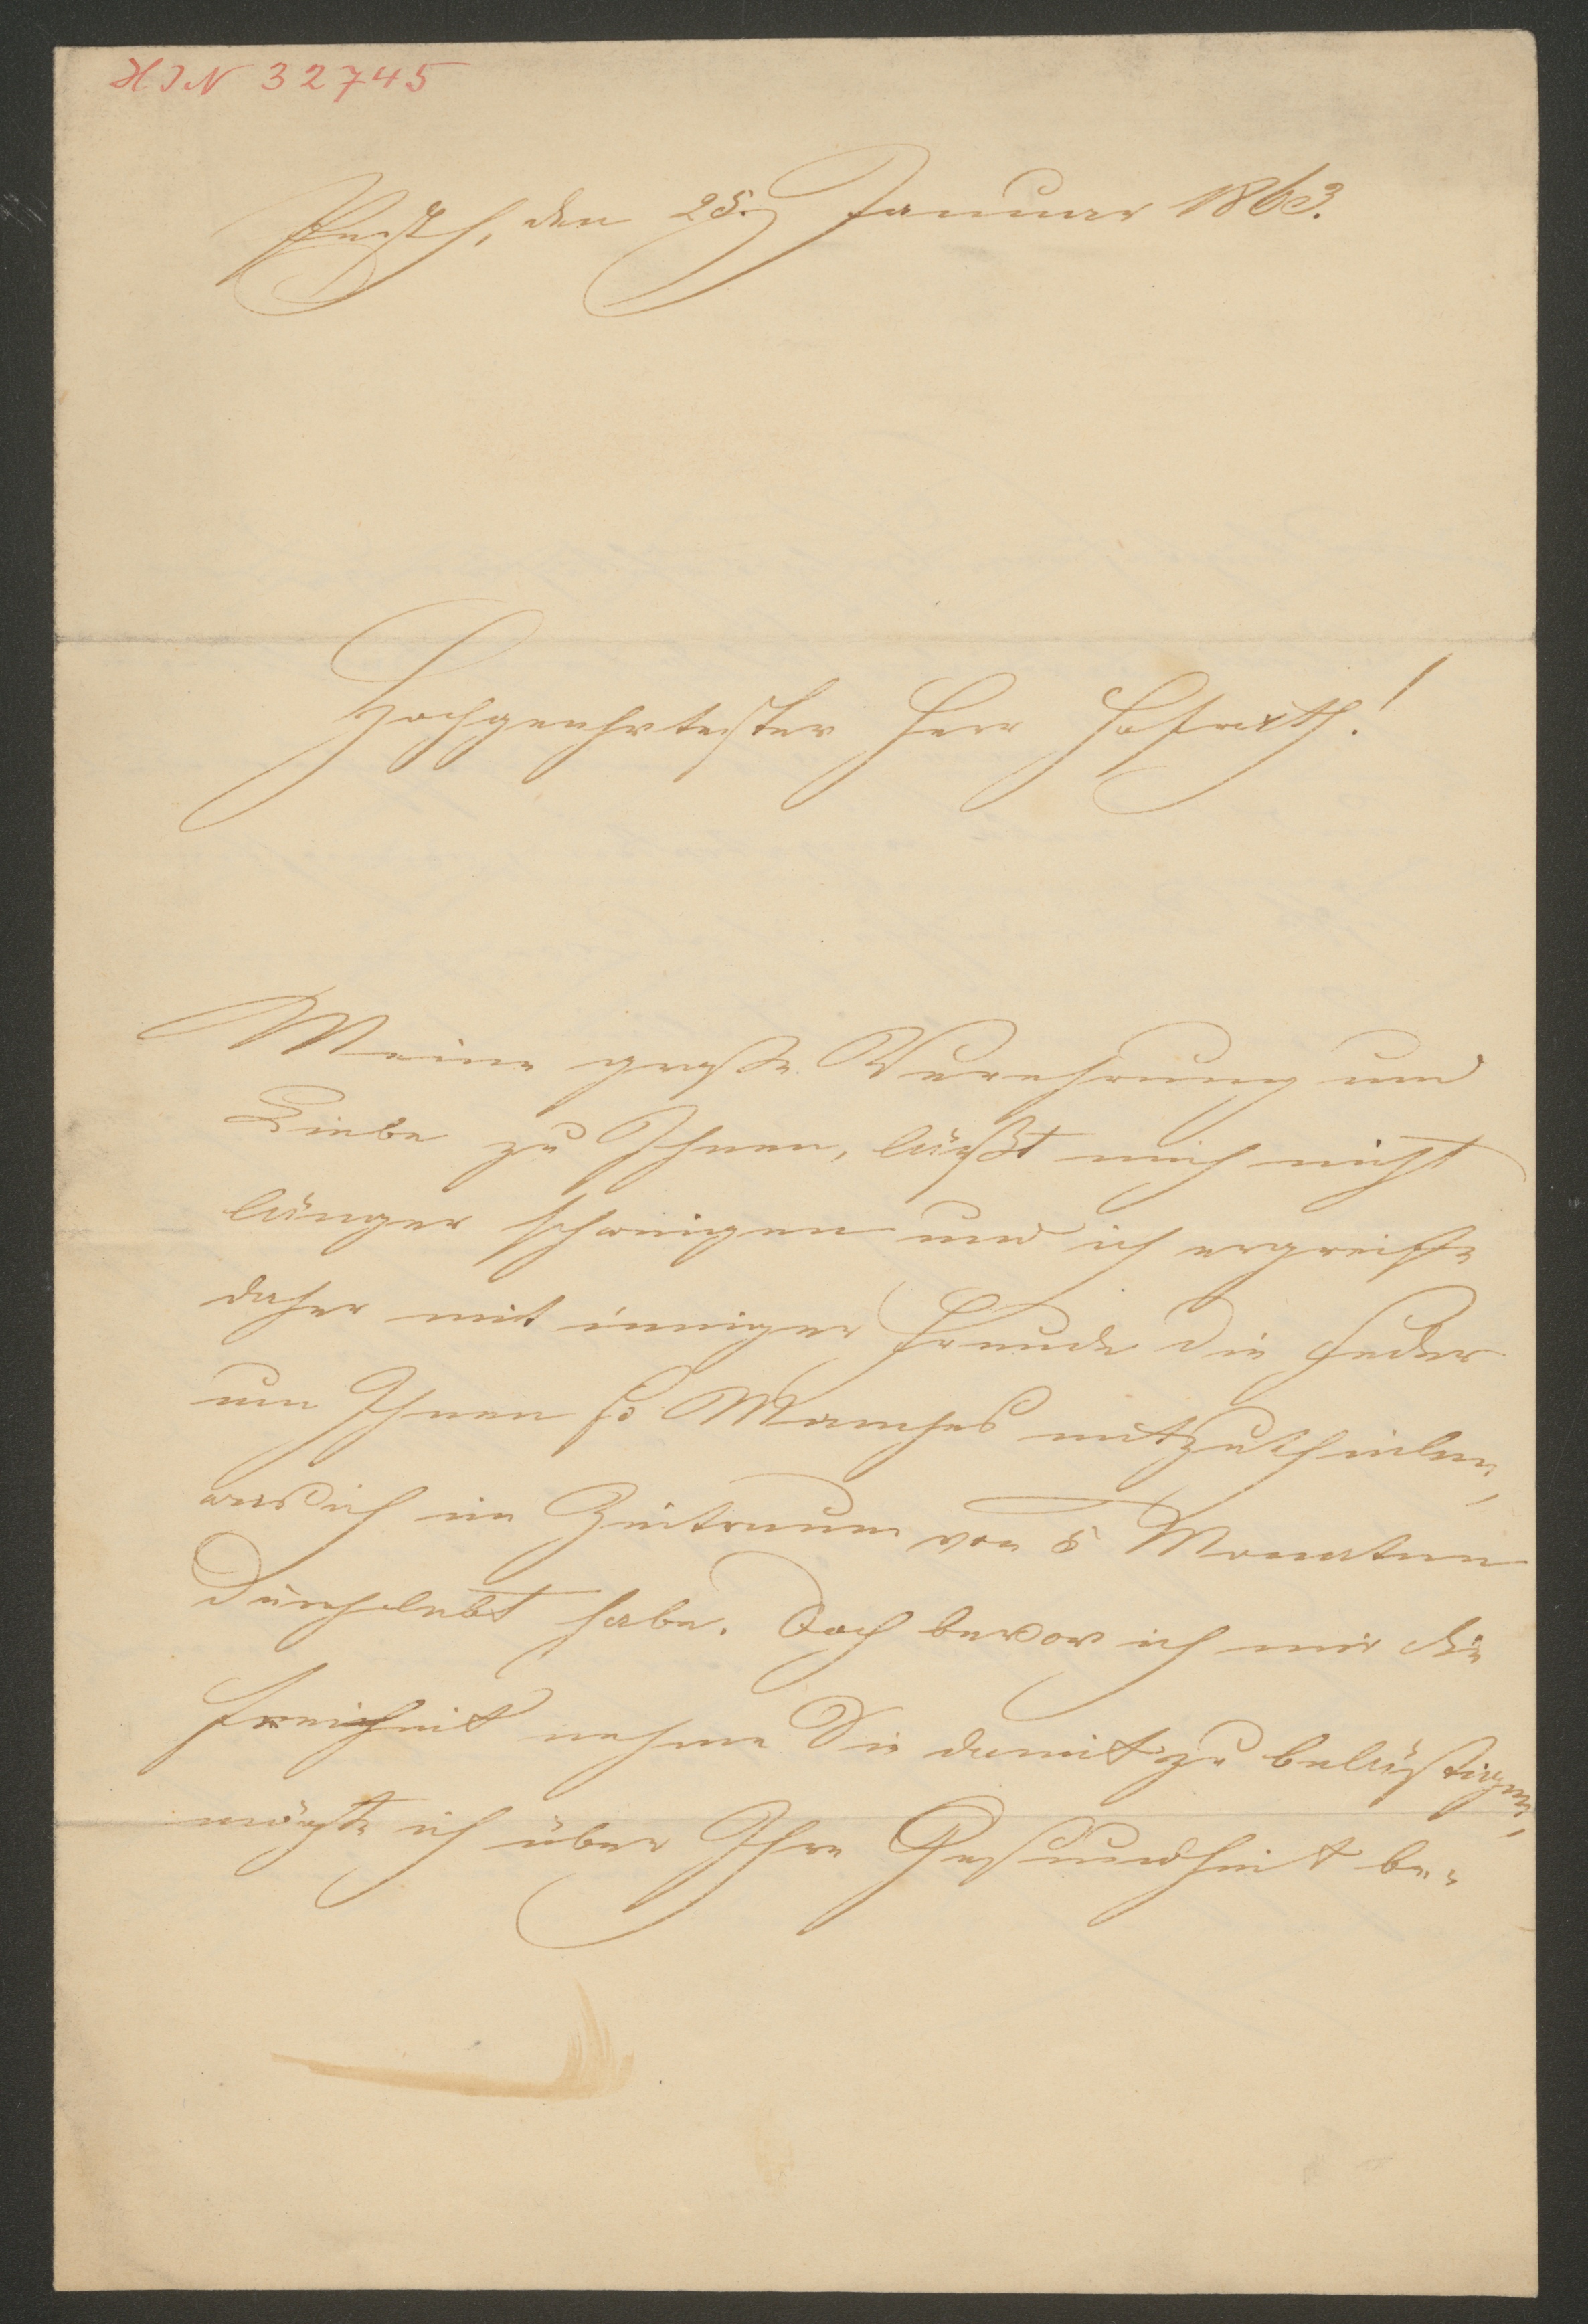 HIN 32745
Pesth, den 25. Januar 1863.
Hochgeehrtester Herr Hofrath!
Meine große Verehrung und
Liebe zu Ihnen, läßt mich nicht
länger schweigen und ich ergreiffe
daher mit inniger Freude die Feder
um Ihnen so Manches mitzutheilen,
was ich im Zeitraum von 5 Monaten
durchlebt habe. Doch bevor ich mir die
Freiheit nehme Sie damit zu belästigen,
möchte ich über Ihre Gesundheit be-